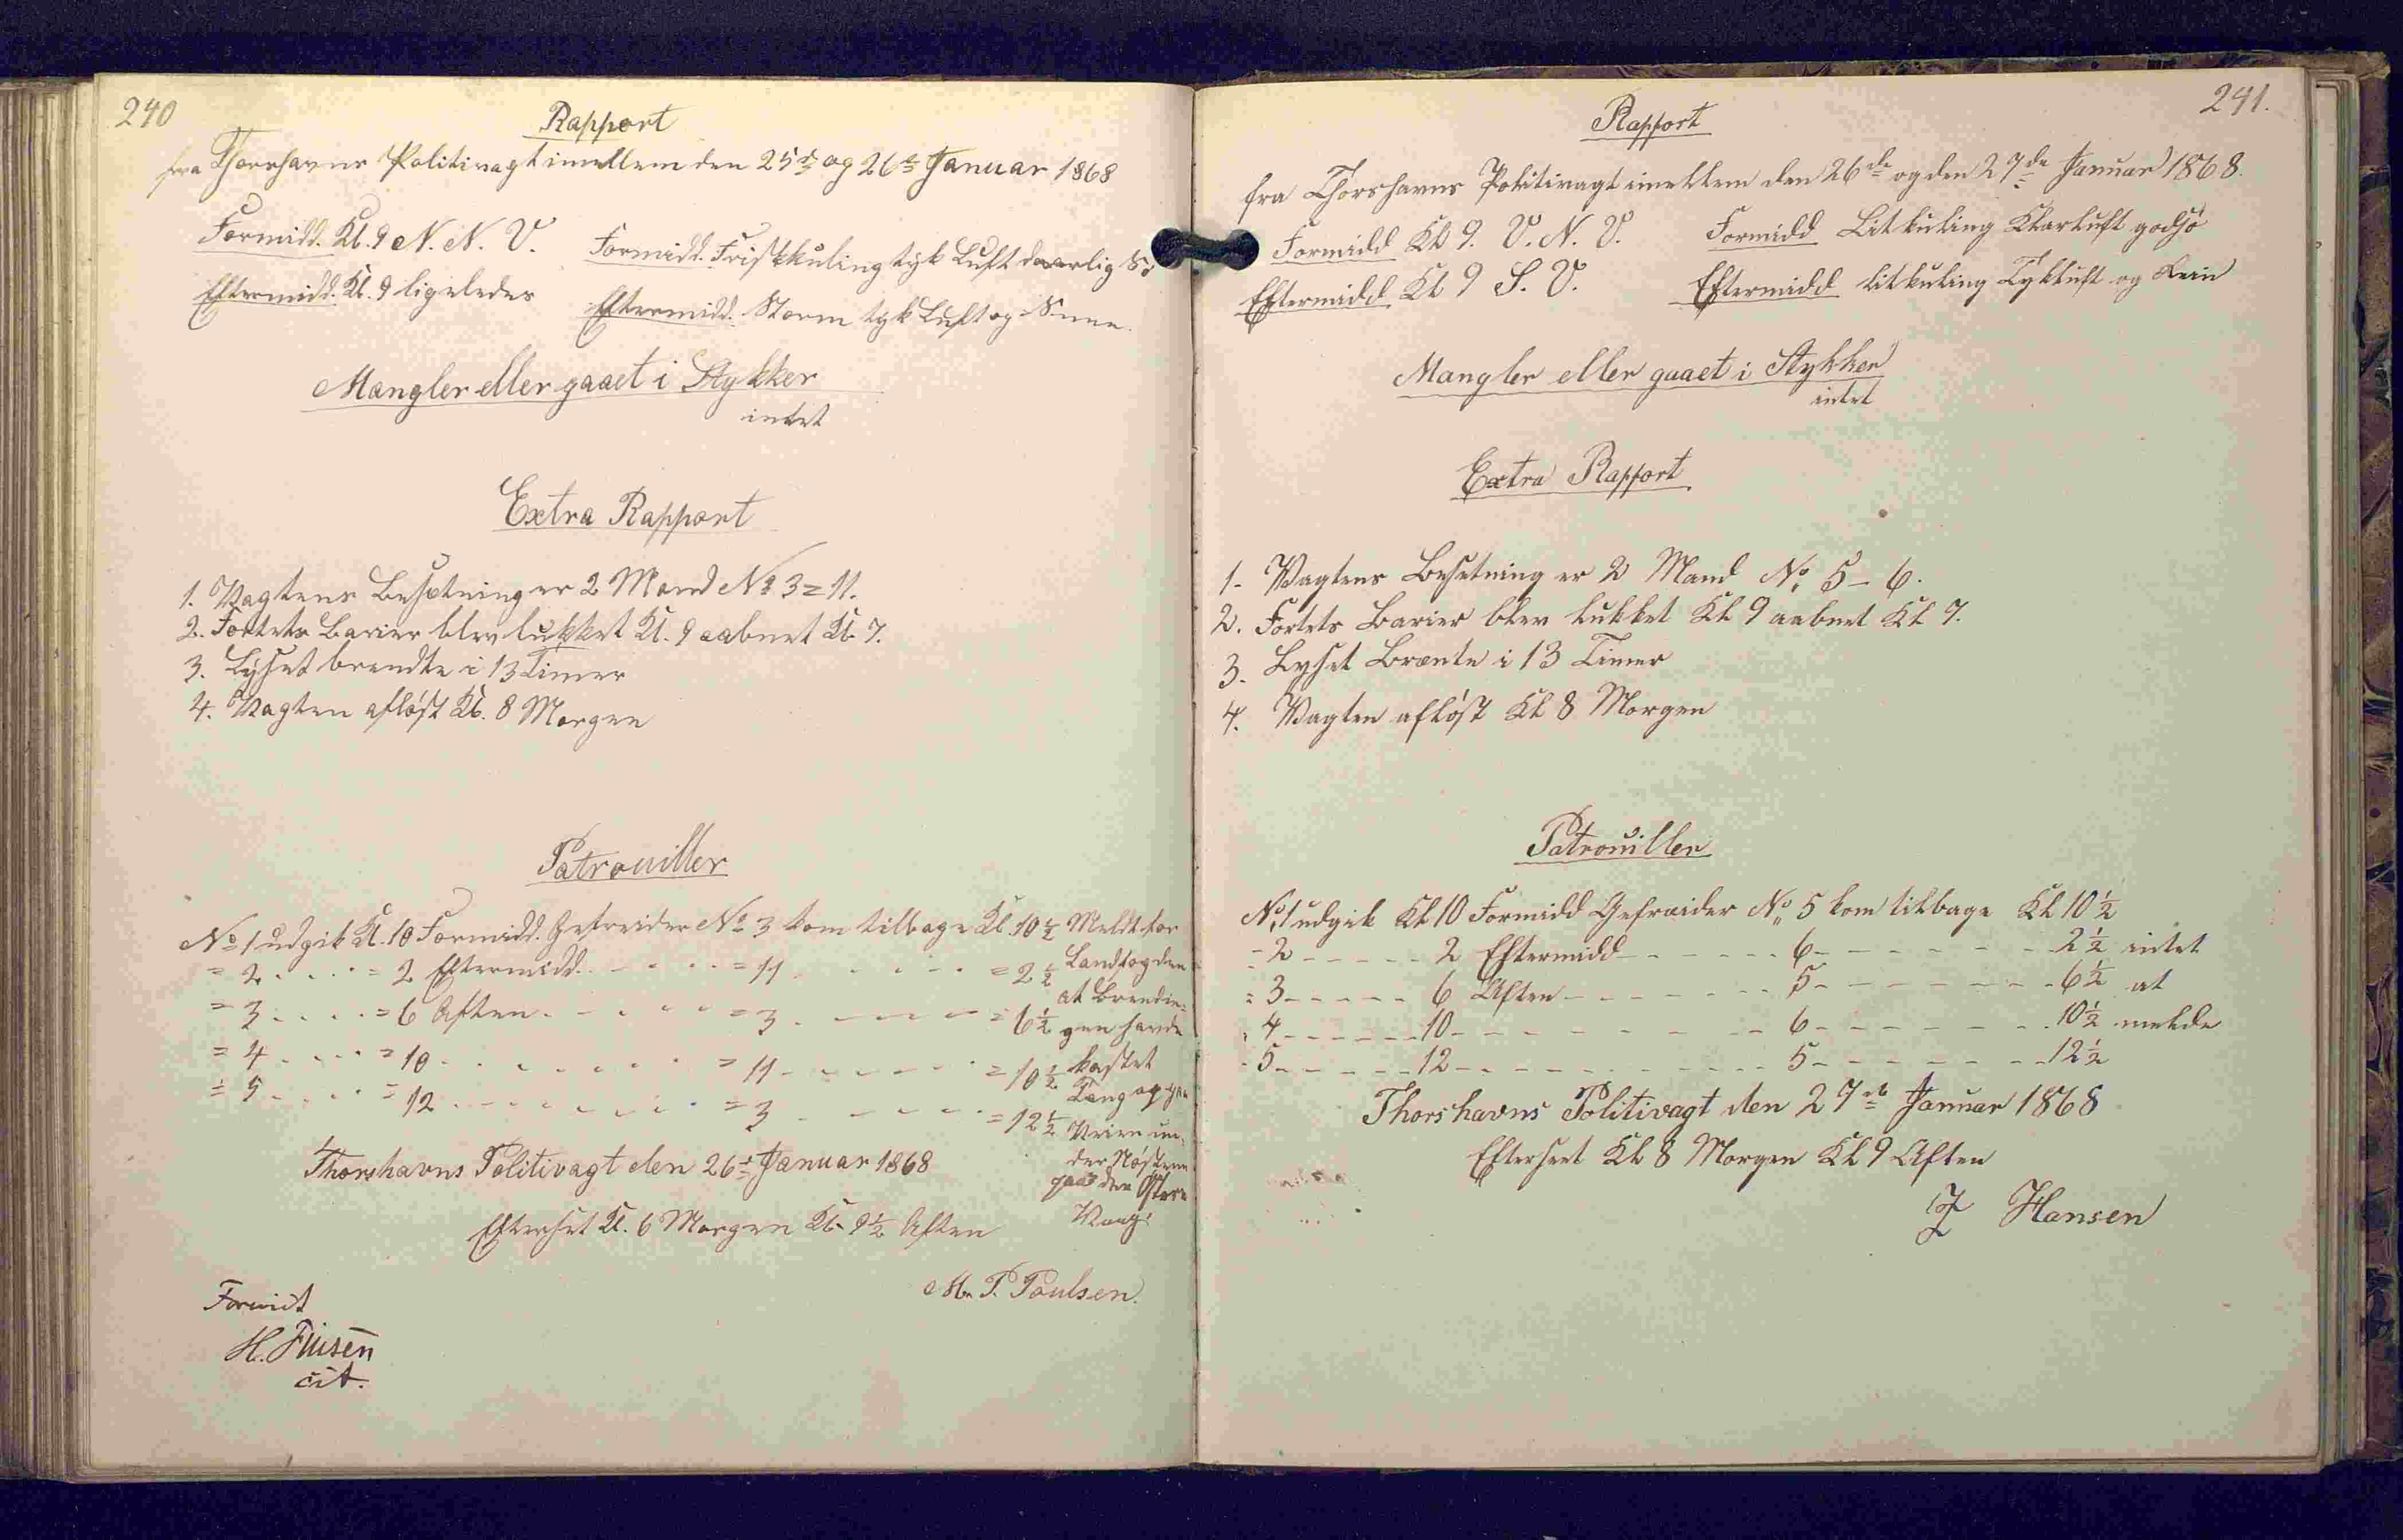 240
Rapport
fra Thorshavns Politivagt imellem den 25de og 26de Januar 1868
Formidd. Kl. 9 N. N. V. Formidd. Friskkuling tyk Luft daarlig Sö
Eftermidd. Kl. 9 ligeledes Eftermidd. Storm tyk Luft og Snee.
Mangler eller gaaet i Stykker
intet
Extra Rapport
1. Vagtens Besetning er 2 Mand No 3 = 11.
2. Fortets Barier blev lukket Kl. 9 aabnet Kl. 7.
3. Lyset brendte i 13 Timer
4. Vagten aflöst Kl. 8 Morgen
Patrouiller
No 1 udgik Kl. 10 Formidd. Gefreider No 3 kom tilbage Kl. 10 1/2 Meldt for
= 2 . . . . = 2 Eftermidd. - - - = 11 - - - = 2 1/2 Landfogden
= 3 . . . . = 6 Aften - - - = 3 - - - = 6 1/2 at Brendin-
gen havde
= 4 . . . . = 10 - - - = 11 - - - = 10 1/2 kastet
= 5 . . . . = 12 - - - = 3 - - - = 12 1/2 Tang op
Veien un-
der Nöstene
paa den Östere
Vaag
Thorshavns Politivagt den 26de Januar 1868
Efterset Kl. 6 Morgen Kl. 9 1/2 Aften
M. P. Poulsen.
Forevist
H. Finsen
cst.
241.
Rapport
fra Thorshavns Politivagt imellem den 26de og den 27de Januar 1868.
Formidd Kl 9. V. N. V. Formidd Litkuling Klarluft godsö
Eftermidd Kl 9 S. V. Eftermidd litkuling Tykluft og Rein
Mangler eller gaaet i Stykker
intet
Extra Rapport
1. Vagtens Besetning er 2 Mand No 5 - 6.
2. Fortets Barier blev lukket Kl 9 aabnet Kl 7.
3. Lyset Brænte i 13 Timer
4. Vagten aflöst Kl 8 Morgen
Patrouiller
No 1 udgik Kl 10 Formidd Gefreider No 5 kom tilbage Kl 10 1/2
- 2 - - - - - 2 Eftermidd - - - - - - 6 - - - - - - 2 1/2 intet
- 3 - - - - - 6 Aften - - - - - - 5 - - - - - - 6 1/2 at
- 4 - - - - - 10 - - - - - - 6 - - - - - - 10 1/2 melde
- 5 - - - - - 12 - - - - - - 5 - - - - - - 12 1/2
Thorshavns Politivagt den 27de Januar 1868
Efterseet Kl 8 Morgen Kl 9 Aften
Hansen